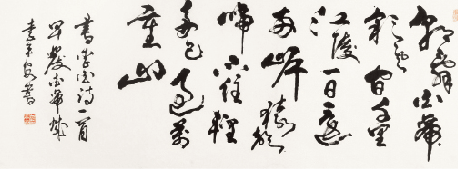 朝辭白帝
彩雲間千里
江陵一日還
兩岸猿聲
啼不住輕
舟已過萬
重山
書李白詩一首
早發白帝城